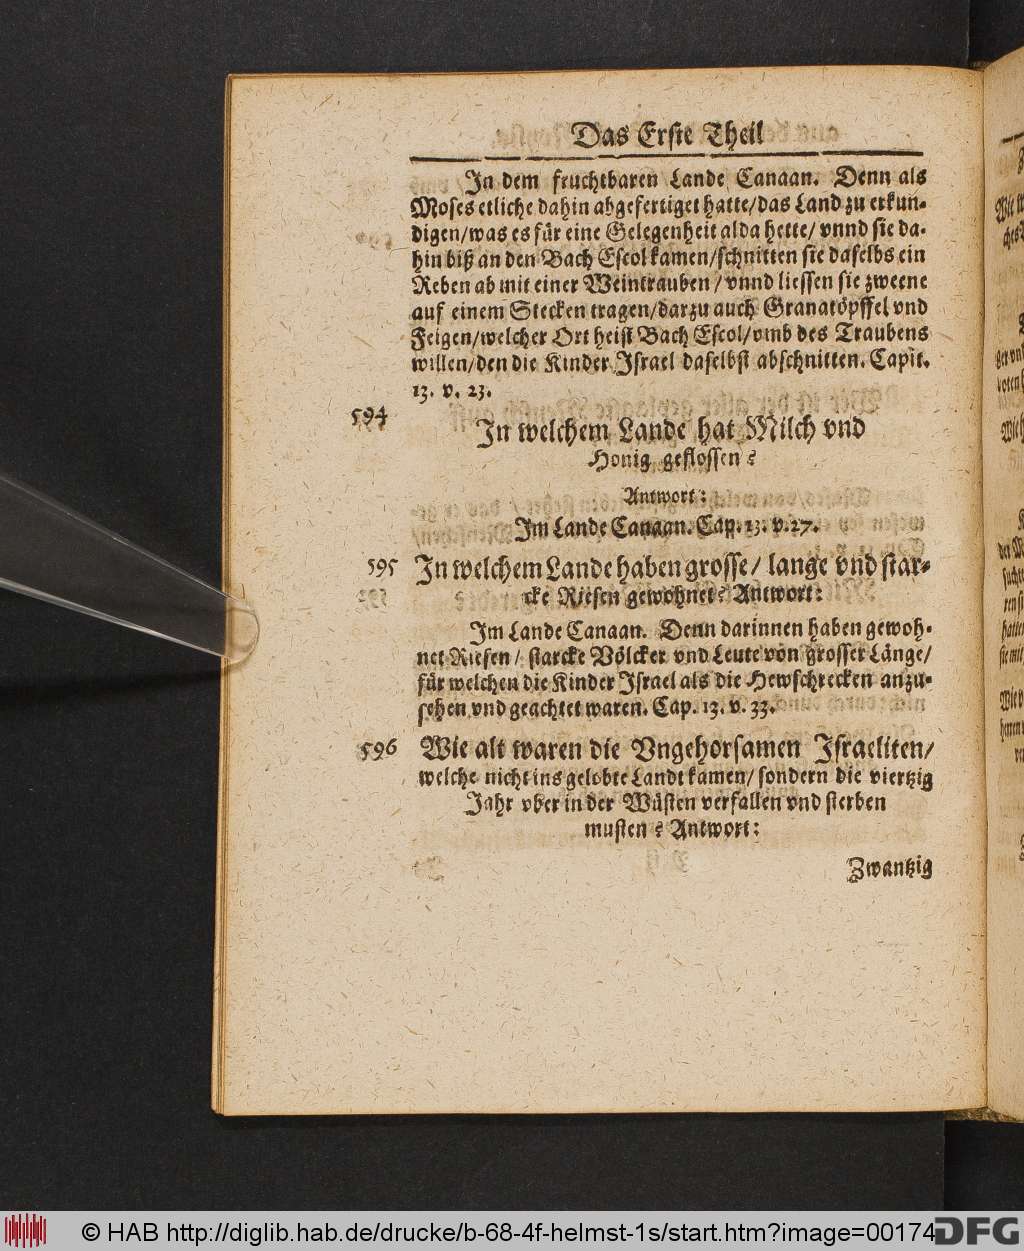 Das Erste Theil
In dem fruchtbaren Lande Canaan. Denn als
Moses etliche dahin abgefertiget hatte/das Land zu erkun-
digen/was es für eine Gelegenheit alda hette/ vnnd sie da-
hin biß an den Bach Escol kamen/schnitten sie daselbs ein
Reben ab mit einer Weintrauben / vnnd liessen sie zweene
auf einem Stecken tragen/darzu auch Granatöpffel vnd
Feigen/welcher Ort heist Bach Escol/vmb des Traubens
willen/den die Kinder Israel daselbst abschnitten. Capit.
13. v. 23.
594
In welchem Lande hat Milch vnd
Honig geflossen?
Antwort:
Im Lande Canaan. Cap. 13. v. 27.
595 In welchem Lande haben grosse/ lange vnd star-
cke Riesen gewohnet? Antwort:
Im Lande Canaan. Denn darinnen haben gewoh-
net Riesen/ starcke Völcker vnd Leute von grosser Länge/
für welchen die Kinder Israel als die Hewschrecken anzu-
sehen vnd geachtet waren. Cap. 13. v. 33.
596 Wie alt waren die Vngehorsamen Israeliten/
welche nicht ins gelobte Landt kamen/ sondern die viertzig
Jahr vber in der Wüsten verfallen vnd sterben
musten? Antwort:
Zwantzig
© HAB http://diglib.hab.de/drucke/b-68-4f-helmst-1s/start.htm?image=00174
DFG